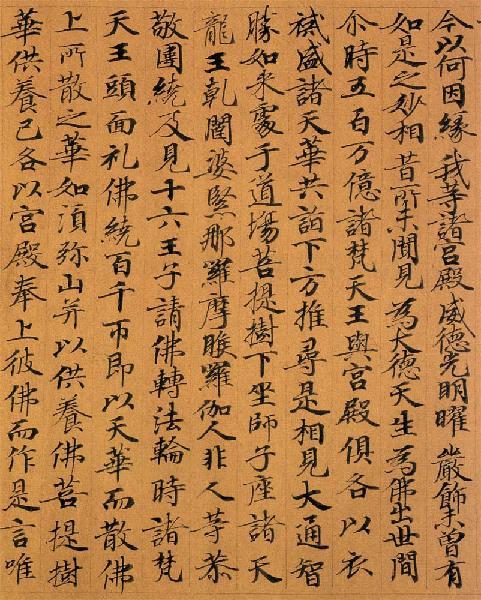 今以何因緣 我等諸宮殿 威德光明曜 嚴飾未曾有
如是之妙相 昔所未聞見 為大德天生 為佛出世間
尒時五百万億諸梵天王與宮殿俱各以衣
祴盛諸天華共詣下方推尋是相見大通智
勝如来處于道場菩提樹下坐師子座諸天
龍王乾闥婆緊那羅摩睺羅伽人非人等恭
敬圍繞及見十六王子請佛轉法輪時諸梵
天王頭面礼佛繞百千帀即以天華而散佛
上所散之華如湏弥山并以供養佛菩提樹
華供養已各以宮殿奉上彼佛而作是言唯